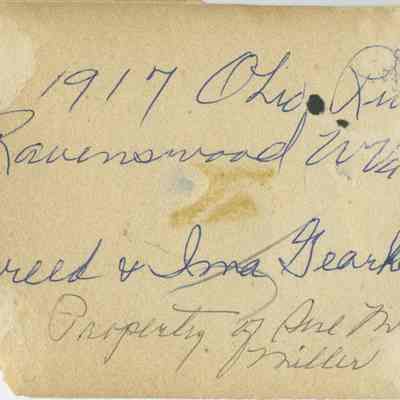 1917 Ohio Riv
Ravenswood W Va
reed & Ima Gearhe
Property of Sue M
Miller